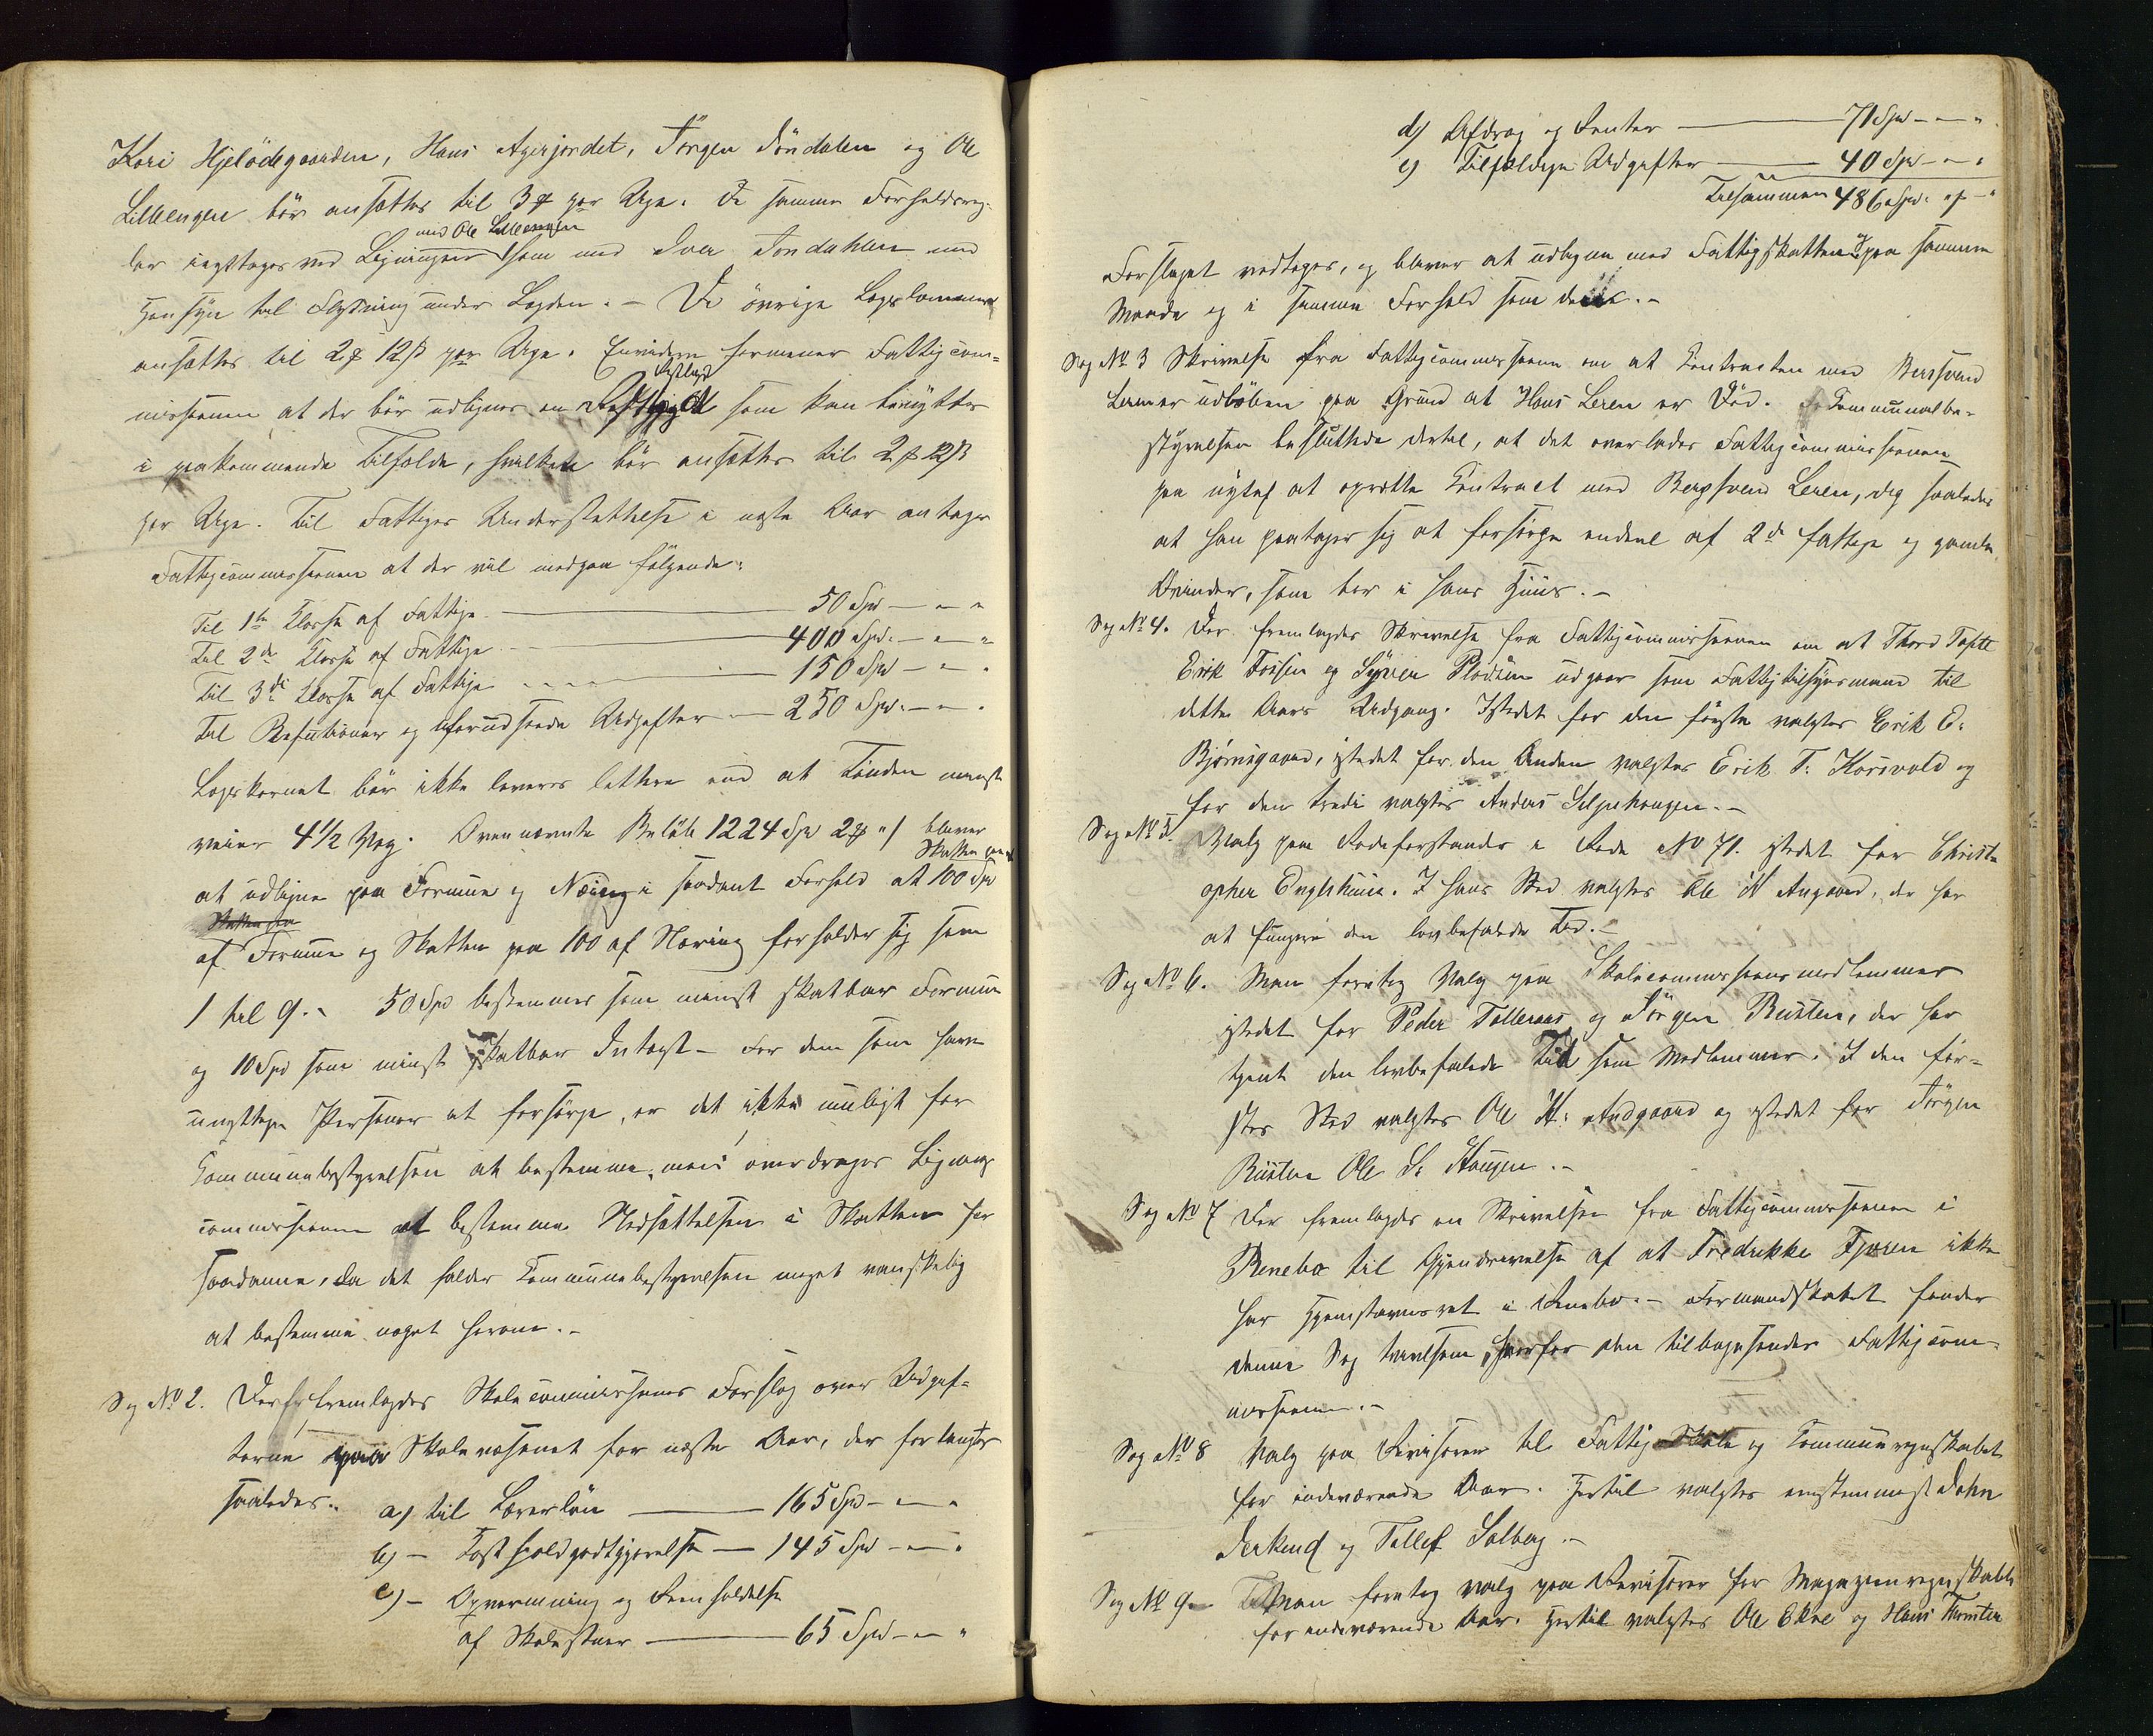 Kari Hjelödegaarden, Hans Agerjordet, Jörgen Jöndalen og Ole
Lilleengen bör ansættes til 3 ₰ pr Uge. De samme Forholdsreg-
ler iagttages ved Ligningen med Ole Lilleengen som med Iver Jondahlen med
Hensyn til Flytning under Lægden. – De övrige Lægslemmer
ansættes til 2 ₰ 12 ß pr Uge. Envidere formener Fattigcom-
missionen at der bör udlignes en Restlægd som kan benyttes
i paakommende Tilfælde, hvilken bör ansættes til 2 ₰ 12 ß
per Uge. Til Fattiges Understøttelse i næste Aar antager
Fattigcommissionen at der vil medgaa fölgende:
Til 1ste Klasse af Fattige — 50 Spd — " — "
Til 2den Klasse af Fattige — 400 Spd. — " — "
Til 3die Klasse af Fattige — 150 Spd — " — "
Til Refutioner og uforudseede Udgifter — 250 Spd. — " — "
Lægskornet bör ikke leveres lettere end at Tönden mindst
veier 4 1/2 Vog. Ovennævnte Belöb 1224 Spd 2 ₰ " ß bliver
at udligne paa Formue og Næring i saadant Forhold at Skatten paa 100 Spd
af Formue og Skatten paa 100 af Næring forholder sig som
1 til 9. – 50 Spd bestemmes som mindst skatbar Formue
og 10 Spd som mindst skatbar Indtægt – For dem som have
unyttige Personer at forsörge, er det ikke muligt for
Communebestyrelsen at bestemme, men overdrages Lignings
commissionen at bestemme Nedsættelsen i Skatten for
saadanne, da det falder Communebestyrelsen meget vanskelig
at bestemme noget herom. –
Sag No 2. Der fremlagdes Skolecommissionens Forslag over Udgif-
terne paa Skolevæsenet for næste Aar, der forlangtes
saaledes. a) til Lærerlön — 165 Spd – " – "
b) – Kostholdgodtgjörelse — 145 Spd – " – "
c) – Opvarmning og Reenholdelse
af Skolestuer — 65 Spd – " – "
d) Afdrag og Renter — 71 Spd – " – "
e) Tilfældige Udgifter — 40 Spd – " – "
Tilsammen 486 Spd. " – "
Forslaget vedtoges, og bliver at udligne med Fattigskatten og paa samme
Maade og i samme Forhold som denne. –
Sag No 3 Skrivelse fra Fattigcommissionen om at Contracten med Bersvend
Leren er udlöben paa Grund at Hans Leren er Död. Communalbe-
styrelsen besluttede dertil, at det overlades Fattigcommissionen
paa nyt at oprette Contract med Bersvend Leren, dog saaledes
at han paatager sig at forsörge endeel af 2de fattige og gamle
Qvinder, som bor i hans Huus. –
Sag No 4. Der fremlagdes Skrivelse fra Fattigcommissionen om at Thord Tofte
Erik Troisen og Syver Plodsen udgaar som Fattigtilsynsmænd til
dette Aars Udgang. Istedet for den förste valgtes Erik O.
Bjørnsgaard, istedet for den Anden valgtes Erik T. Korsvold og
for den tredie valgtes Anders Seljehaugen. –
Sag No 5. Valg paa Rodeforstander i Rode No 71. istedet for Christ-
opher Engelshuus. I hans Sted valgtes Ole H Augaard, der har
at fungere den lovbefalede Tid. –
Sag No 6. Man foretog Valg paa Skolecommissionsmedlemmer
istedet for Peder Tolleraas og Jörgen Rusten, der har
tjent den lovbefalede Tid som Medlemmer. I den för-
stes Sted valgtes Ole H. Andgaard og istedet for Jörgen
Rusten Ole S. Haugen. –
Sag No 7 Der fremlagdes en Skrivelse fra Fattigcommissionen i
Rennebo til Gjendrivelse af at Fredrikke Fjæren ikke
har Hjemstavnsret i Rennebo. – Formandskabet finder
denne Sag tvivlsom, hvorfor den tilbagesendes Fattigcom-
missionen. –
Sag No 8 Valg paa Revisorer til Fattig- Skole og Communeregnskabet
for indeværende Aar. Hertil valgtes enstemmigt John
Jerkend og Tollef Solberg. –
Sag No 9. – Man foretog valg paa Revisorer for Magazinregnskabet
for indeværende Aar. Hertil valgtes Ole Ekre og Hans Thonsten